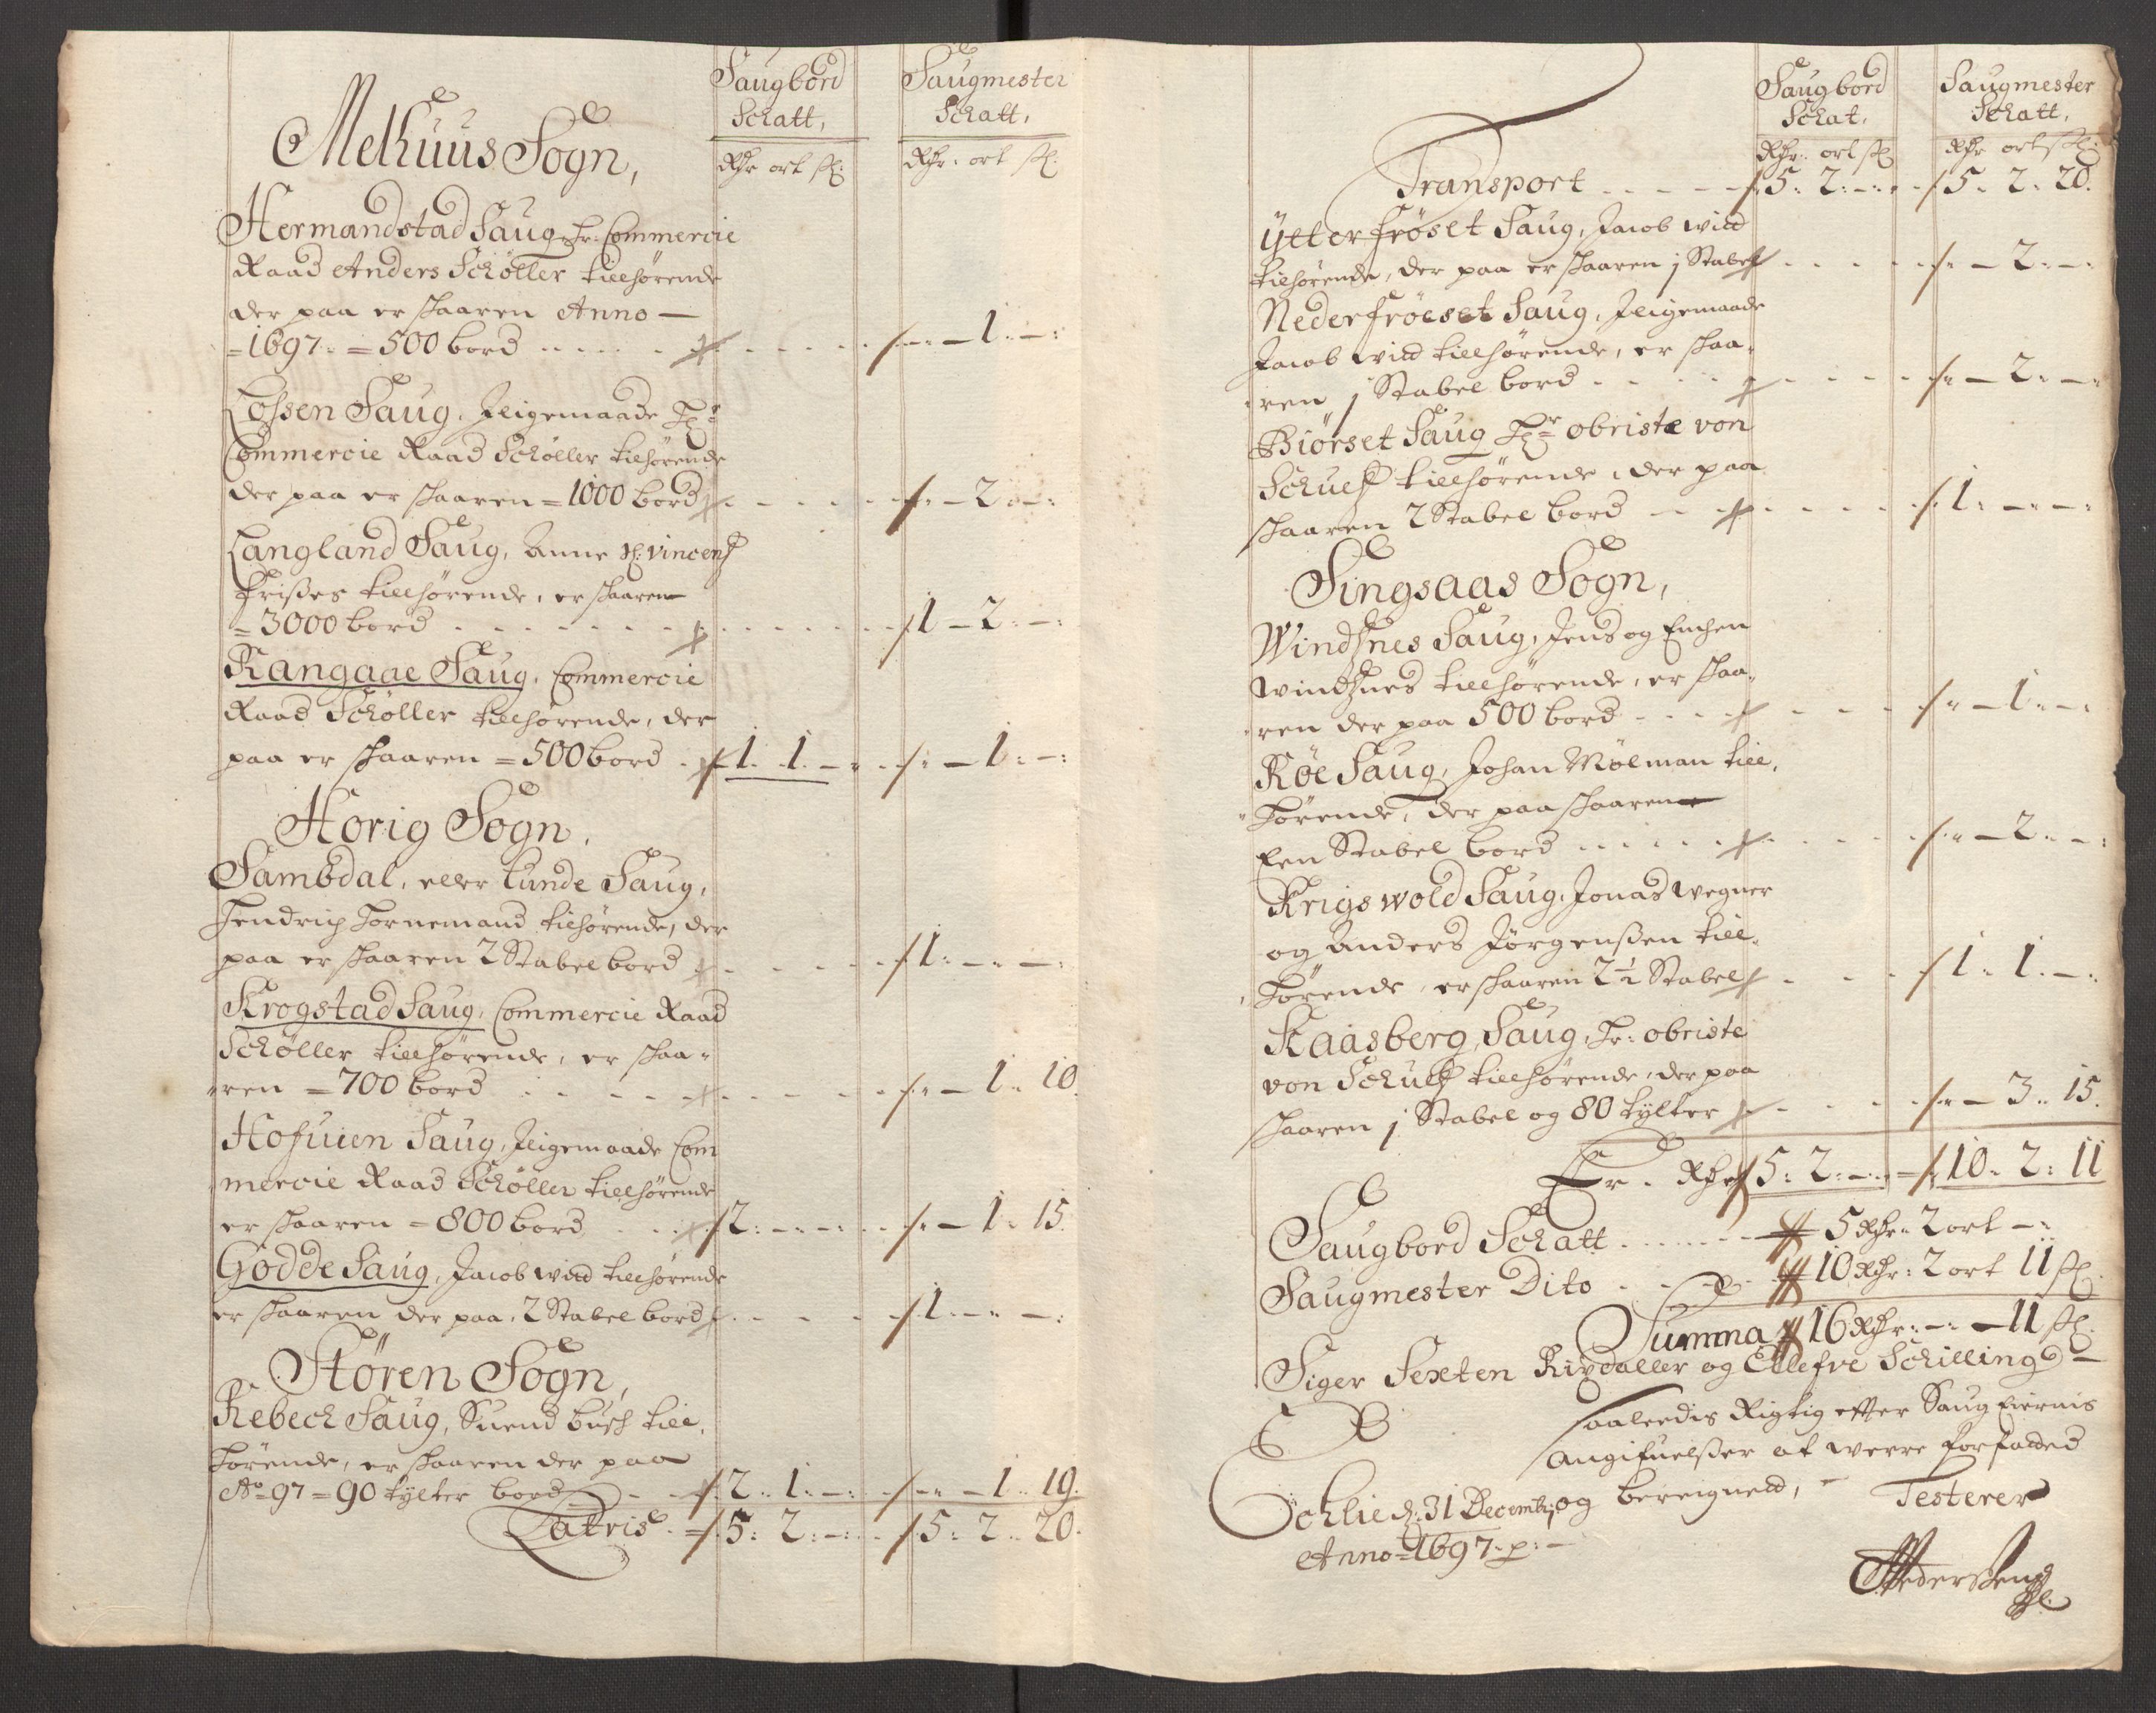 Saugbord Saugmester
Schatt, Schatt,
Rdr ort ſſ: Rdr: ort ſſ:
Melhuus Sogn,
Hermandstad Saug, Hr: Commercie
Raad Anders Schøller tilhørende
der paa er skaaren Anno —
=1697:=500 bord . . . . . — 1. —:
Lossen Saug, Jligemaade Hr:
Commercie Raad Schøller tilhørende
der paa er skaaren =1000 bord — 2 . —:
Langland Saug, Anne Sl: vincentz
Frißes tilhørende, er skaaren
=3000 bord . . . . . . 1 — 2: —:
Kangaae Saug, Commercie
Raad Schøller tilhørende, der
paa er skaaren =500 bord . 1. 1. — — 1: —:
Hørig Sogn,
Sambdal, eller Lunde Saug,
Hendrich Hornemand tilhørende, der
paa er skaaren 2 Stabel bord 1: —. —:
Krogstad Saug, Commercie Raad
Schøller tilhørende, er skaa=
=ren =700 bord . . . . . — 1. 10.
Hofuien Saug, Jligemaade Com
mercie Raad Schøller tilhørende
er skaaren =800 bord . . . 2: —. —: — 1. 15.
Godde Saug, Jacob wild tilhørende
er skaaren der paa, 2 Stabel bord 1. —. —:
Støren Sogn,
Rebech Saug, Suend bush till,
hørende, er skaaren der paa
Ao 97 =90 tylter bord 2. 1. —: — 1. 19.
Latris. = 5: 2: —: 5: 2. 20.
Saugbord Saugmester
Schat. Schatt,
Rdr: ort ſſ Rdr ort ſſ:
Transport . . . . 5: 2: —: 5. 2. 20.
Ytter frøset Saug, Jacob wild
tilhørende, der paa er skaaren j Stabel — 2: —:
Nederfrøeset Saug, Jligemaade
Jacob wild tilhørende, er skaa=
=ren j Stabel bord . . . . — 2: —:
Biørset Saug Hr: obriste von
Schultz tilhørende, der paa
skaaren 2 Stabel bord — 1: —. —:
Singsaas Sogn,
Windsnes Saug, Jens og Enchen
windsnes tilhørende, er skaa=
=ren der paa 500 bord . . . — 1. —:
Røe Saug, Johan Mølman till,
hørende, der paa skaaren
Een Stabel bord . . . . . — 2. —:
Krigswold Saug, Jonas wegner
og Anders Jørgenßen till=
hørende, er skaaren 2 ½ Stabel 1. 1. —:
Kaasberg, Saug, Hr: obriste
von Schultz tilhørende, der paa
skaaren j Stabel og 80 tylter — 3. 15.
Er. Rdr 5: 2: —: = 10. 2: 11
Saugbord Schatt . . . . . — 5 Rdr. 2 ort —:
Saugmester Dito . . . . 10 Rdr: 2 ort 11 ſſ.
Summa 16 Rdr: —: — 11 ſſ.
Siger Sexten Rixdaller og Ellefve Schilling —
saaleedis Rigtig effter Saug Eiernis
angifuelßer at werre forfatted
og bereigned, — Testerer
Schlie d: 31 Decembr:
Anno =1697. p: —